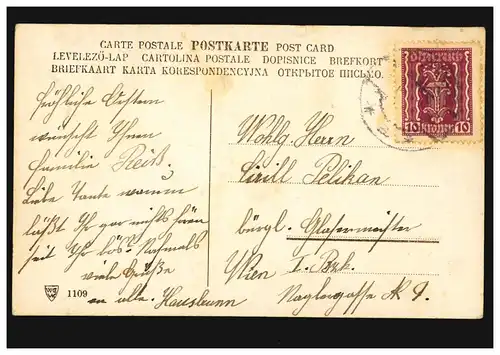 CARTE POSTALE POSTKARTE POST CARD
LEVELEZŐ-LAP CARTOLINA POSTALE DOPISNICE BREFKORT
BRIEFKAART KARTA KORESPONDENCYJNA ОТКРЫТОЕ ПИСЬМО.
10 KRONEN 10
fröhliche Ostern
wünscht Ihnen
Familie
Liebe Tante warum
läßt Ihr gar nichts hören
seit Ihr bös. Nochmals
viele Grüße
an alle.
Wohlg. Herrn
Cirill Pelikan
bürgl. Glasermeister
Wien I. Bzk.
Naglergasse No 9.
1109